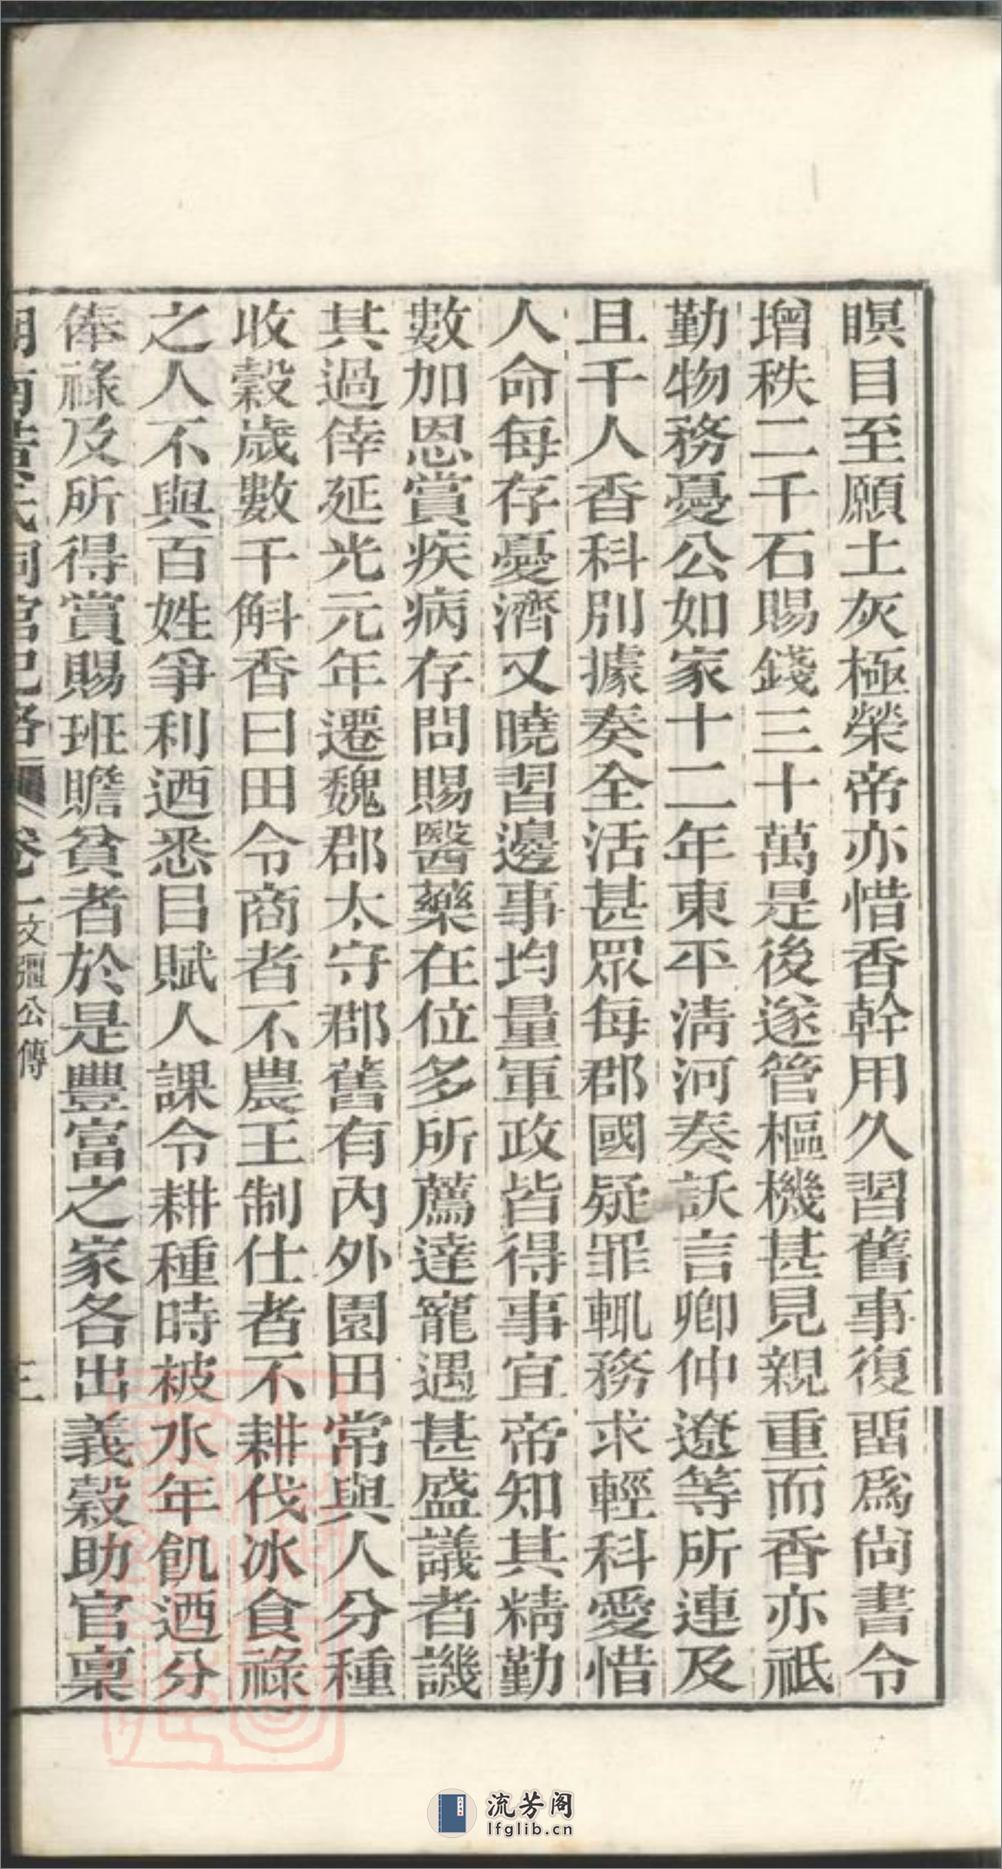 瞑目至願土灰極榮帝亦惜香幹用久習舊事復畱爲尙書令
增秩二千石賜錢三十萬是後遂管樞機甚見親重而香亦祗
勤物務憂公如家十二年東平淸河奏訞言卿仲遼等所連及
且千人香科別據奏全活甚眾每郡國疑罪輒務求輕科愛惜
人命每存憂濟又曉習邊事均量軍政皆得事宜帝知其精勤
數加恩賞疾病存問賜醫藥在位多所薦達寵遇甚盛議者譏
其過倖延光元年遷魏郡太守郡舊有內外園田常與人分種
收穀歲數千斛香曰田令商者不農王制仕者不耕伐冰食祿
之人不與百姓爭利迺悉㠯賦人課令耕種時被水年飢迺分
俸祿及所得賞賜班贍貧者於是豐富之家各出義穀助官稟
南氏祠官卷一 文彊公傳 三
流芳阁
lfglib.cn